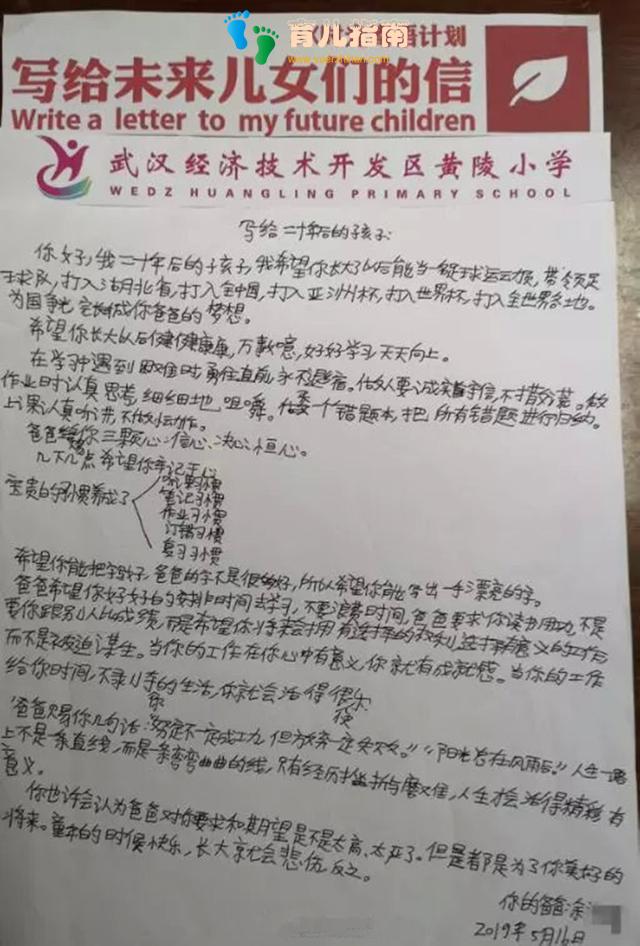 育儿指南
语计划
写给未来儿女们的信
Write a letter to my future children
武汉经济技术开发区黄陵小学
WEDZ HUANGLING PRIMARY SCHOOL
写给二十年后的孩子:
你好,我二十年后的孩子,我希望你长大以后能当一名足球运动员,带领足
球队,打入湖北省,打入全中国,打入亚洲杯,打入世界杯,打入全世界各地。
为国争光,完成你爸爸的梦想。
希望你长大以后健健康康,万事,好好学习天天向上。
在学习中遇到困难时勇往直前,永不退缩。做人要诚实守信,不打架。做
作业时认真思考,细细地咀嚼。做一个错题本,把所有错题进行归纳。
上课认真听讲,不做小动作。
爸爸给你三颗心:信心、决心、恒心。
几下几点希望你牢记于心
宝贵的习惯养成了
听课习惯
笔记习惯
作业习惯
订错习惯
复习习惯
希望你能把字写好,爸爸的字不是很好,所以希望你能写出一手漂亮的字。
爸爸希望你好好的安排时间去学习,不要浪费时间,爸爸要求你读书用功,不是
要你跟别人比成绩,而是希望你将来会拥有选择的权利,选择有意义的工作
而不是被迫谋生。当你的工作在你心中有意义,你就有成就感。当你的工作
给你时间,不剥夺你的生活,你就会活得很快乐
爸爸赐你几句话:“努力不一定成功,但放弃一定失败。”“阳光总在风雨后。”人生一路
上不是一条直线,而是一条弯弯曲曲的线,只有经历挫折与磨难,人生才会活得精彩有
意义。
你也许会认为爸爸对你要求和期望是不是太高、太严了。但是都是为了你美好的
将来。童年的时候快乐,长大就会悲伤,反之。
你的爸爸:涂
2019年5月16日